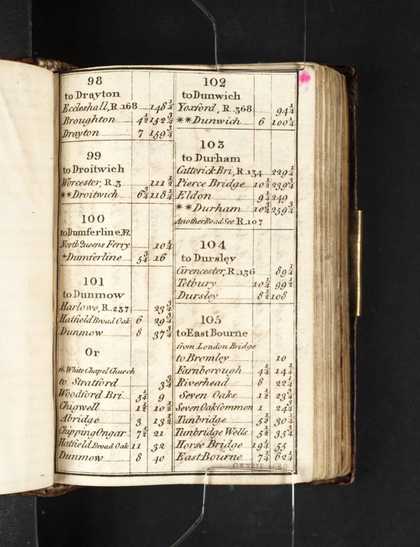 98
to Drayton
Eccleshall, R.168 148 3/4
Broughton 4 1/2 152 3/4
Drayton 7 159 3/4
99
to Droitwich
Worcester, R.3 111 1/2
**Droitwich 6 3/4 118 1/4
100
to Dumferline, N
North Queens Ferry 10 1/4
*Dumferline 5 3/4 16
101
to Dunmow
Harlowe, R.237 23 3/4
Hatfield Broad Oak 6 29 3/4
Dunmow 8 37 3/4
Or
White Chapel Church
to Stratford 3 3/4
Woodford Bri. 5 1/4 9
Chigwell 1 1/2 10 1/2
Abridge 3 13 1/2
Chipping Ongar 7 1/2 21
Hatfield Broad Oak 11 32
Dunmow 8 40
102
to Dunwich
Yoxford, R.368 94 1/4
**Dunwich 6 100 1/4
103
to Durham
Catterick Bri, R.134 229 1/4
Pierce Bridge 10 1/2 239 3/4
Eldon 9 1/4 249
**Durham 10 3/4 259 3/4
Another Road See R.107
104
to Dursley
Cirencester, R.136 89 1/4
Tetbury 10 1/4 99 1/2
Dursley 8 1/2 108
105
to East Bourne
from London Bridge
to Bromley 10
Farnborough 4 1/4 14 1/4
Riverhead 8 22 1/4
Seven Oaks 1 1/2 23 3/4
Seven Oak Common 1 24 3/4
Tunbridge 5 1/2 30 1/4
Tunbridge Wells 5 1/2 35 3/4
Horse Bridge 19 1/4 55
East Bourne 7 1/2 62 1/2